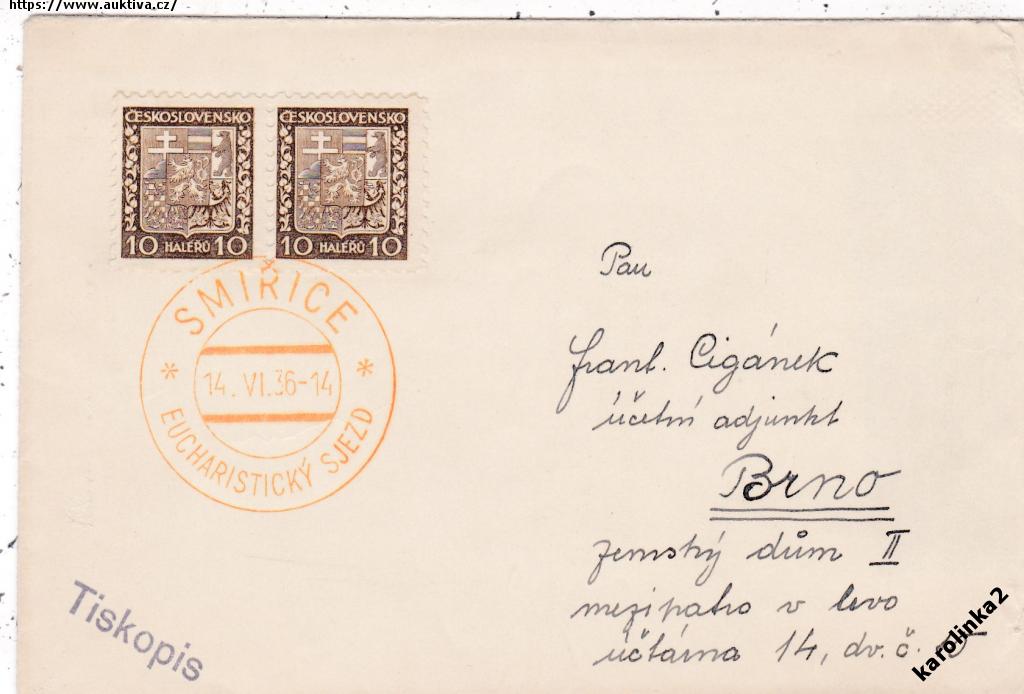 https://www.auktiva.cz/
ČESKOSLOVENSKO ČESKOSLOVENSKO
10 HALÉŘŮ 10 10 HALÉŘŮ 10
SMIŘICE
14. VI.36-14
EUCHARISTICKÝ SJEZD
Tiskopis
Pan
Frant. Cigánek
účetní adjunkt
Brno
zemský dům II
mezipatro v levo
účtárna 14, dv. č.
karolinka2